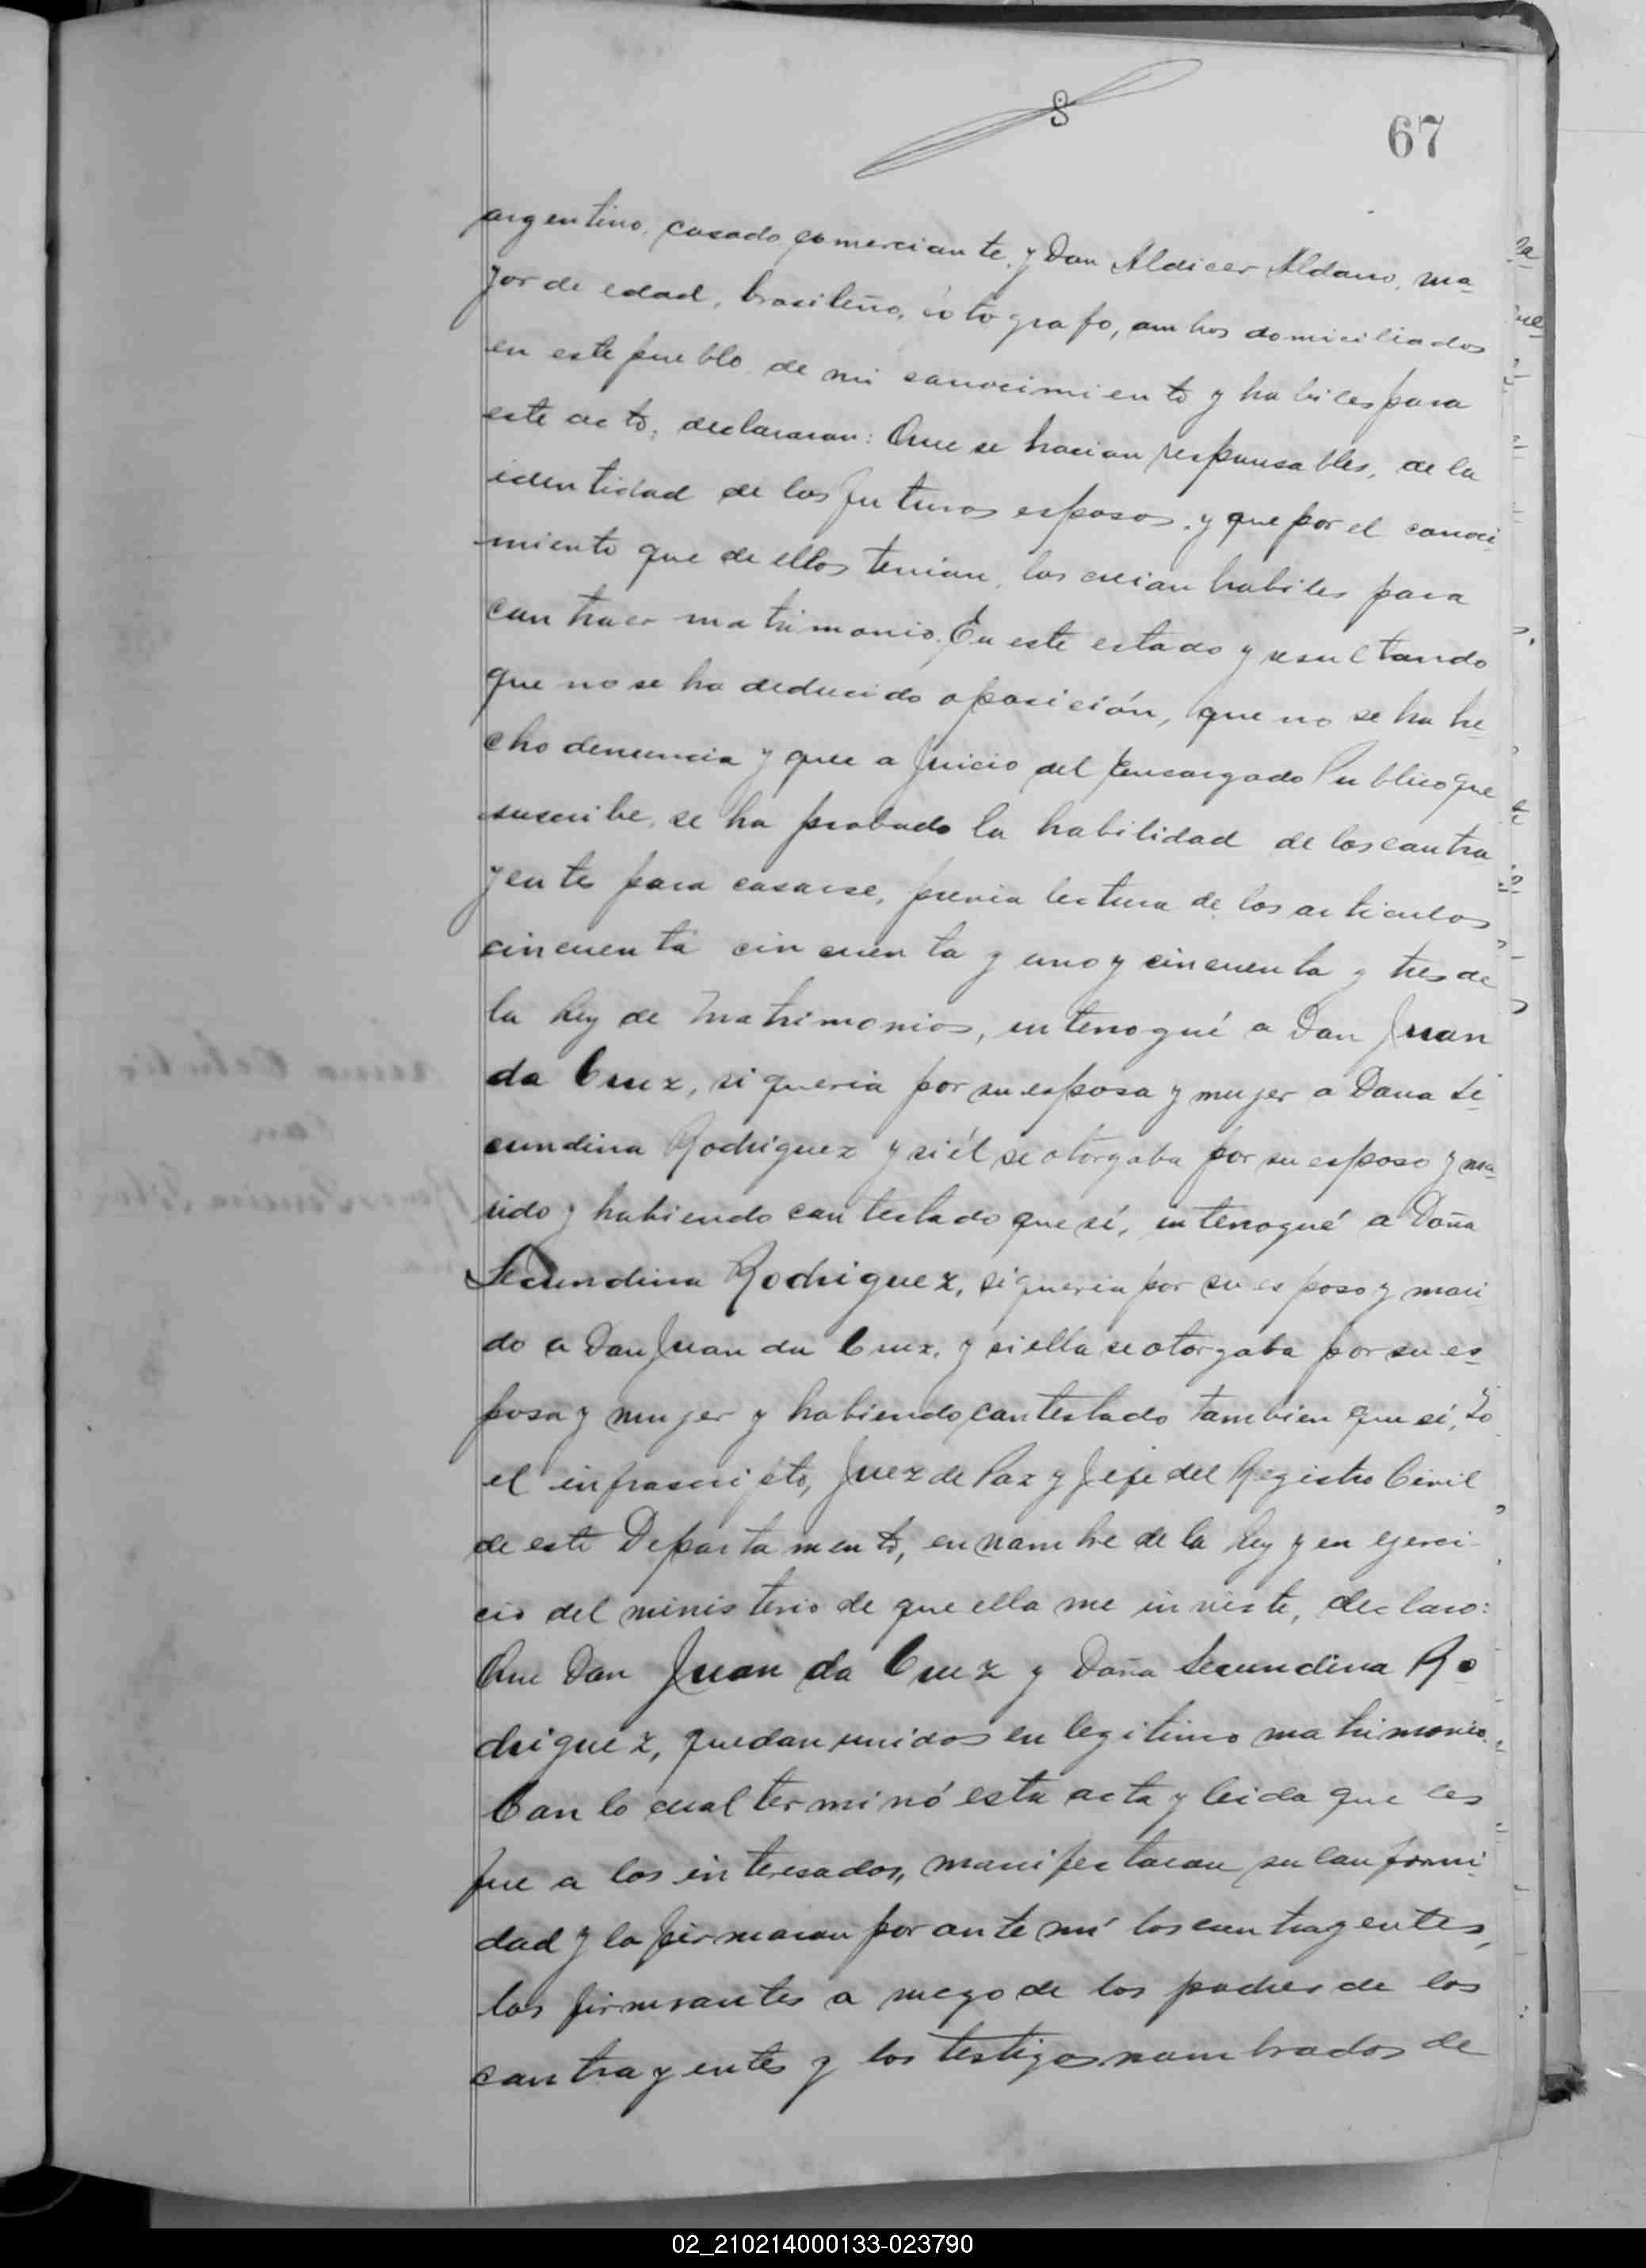 8
67
argentino, casado comerciante, y Don Aldicer Aldano, ma
yor de edad, brasileño, fotografo, ambos domiciliados
en este pueblo, de mi conocimiento y habiles para
este acto, declararon: Que se hacian responsables, de la
identidad de los futuros esposos, y que por el conoci
miento que de ellos tenian, los creian habiles para
contraer matrimonio. En este estado y resultando
que no se ha deducido oposición, que no se ha he
cho denuncia y que a juicio del Encargado Publico que
suscribe, se ha probado la habilidad de los contra
yentes para casarse, previa lectura de los articulos
cincuenta cincuenta y uno y cincuenta y tres de
la Ley de Matrimonios, interrogué a Don Juan
da Cruz, si queria por su esposa y mujer a Doña Se
cundina Rodriguez y si él se otorgaba por su esposo y ma
rido y habiendo contestado que sí, interrogué a Doña
Secundina Rodriguez, si queria por su esposo y mari
do a Don Juan da Cruz, y si ella se otorgaba por su es
posa y mujer y habiendo contestado tambien que sí, Yo
el infrascripto, Juez de Paz y Jefe del Registro Civil
de este Departamento, en nombre de la Ley y en ejerci
cio del ministerio de que ella me inviste, declaro:
Que Don Juan da Cruz y Doña Secundina Ro
driguez, quedan unidos en legitimo matrimonio.
Con lo cual terminó esta acta y leida que les
fue a los interesados, manifestaron su conformi
dad y la firmaron por ante mí los contrayentes,
los firmantes a ruego de los padres de los
contrayentes y los testigos nombrados de
02_210214000133-023790